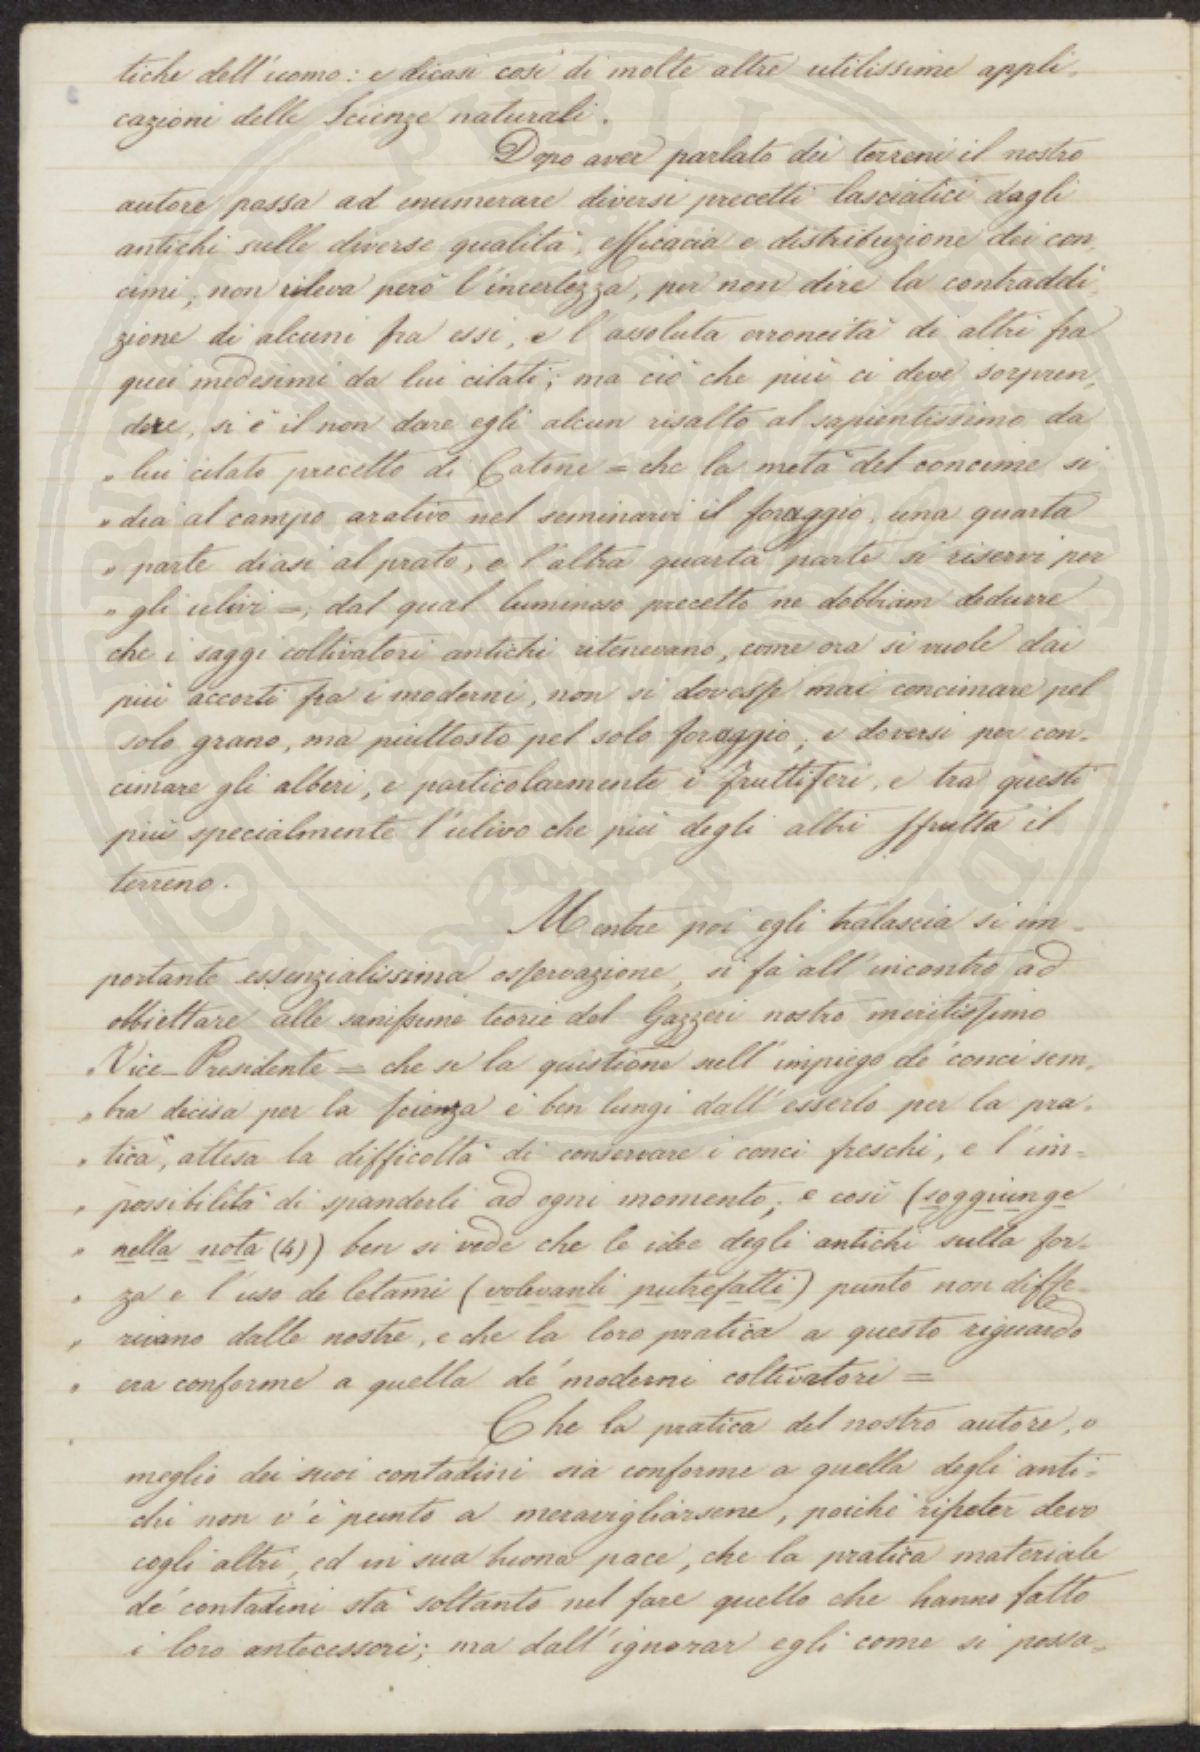 tiche dell'uomo: e dicasi così di molte altre utilissime appli-
cazioni delle Scienze naturali.
Dopo aver parlato dei terreni il nostro
autore passa ad enumerare diversi precetti lasciatici dagli
antichi sulle diverse qualità, efficacia e distribuzione dei con-
cimi, non rileva però l'incertezza, per non dire la contraddi-
zione di alcuni fra essi, e l'assoluta erroneità di altri fra
quei medesimi da lui citati; ma ciò che più ci deve sorpren-
dere, si è il non dare egli alcun risalto al sapientissimo da
" lui citato precetto di Catone = che la metà del concime si
" dia al campo arativo nel seminarvi il foraggio, una quarta
" parte diasi al prato, e l'altra quarta parte si riservi per
" gli ulivi =, dal qual luminoso precetto ne dobbiam dedurre
che i saggi coltivatori antichi ritenevano, come ora si vuole dai
più accorti fra i moderni, non si dovesse mai concimare pel
solo grano, ma piuttosto pel solo foraggio; e doversi per con-
cimare gli alberi, e particolarmente i fruttiferi, e tra questi
più specialmente l'ulivo che più degli altri sfrutta il
terreno.
Mentre poi egli tralascia sì im-
portante essenzialissima osservazione, si fa all'incontro ad
obbiettare alle sanissime teorie del Gazzeri nostro meritissimo
" Vice-Presidente = che se la quistione sull'impiego de' conci sem-
" bra decisa per la scienza è ben lungi dall'esserlo per la pra-
" tica, attesa la difficoltà di conservare i conci freschi, e l'im-
" possibilità di spanderli ad ogni momento; e così (soggiunge
" nella nota (4)) ben si vede che le idee degli antichi sulla for-
" za e l'uso de letami (volevanli putrefatti) punto non diffe-
" rivano dalle nostre, e che la loro pratica a questo riguardo
" era conforme a quella de' moderni coltivatori =
Che la pratica del nostro autore, o
meglio dei suoi contadini sia conforme a quella degli anti-
chi non v'è punto a meravigliarsene, poiché ripeter devo
cogli altri, ed in sua buona pace, che la pratica materiale
de' contadini sta soltanto nel fare quello che hanno fatto
i loro antecessori; ma dall'ignorar egli come si possa-